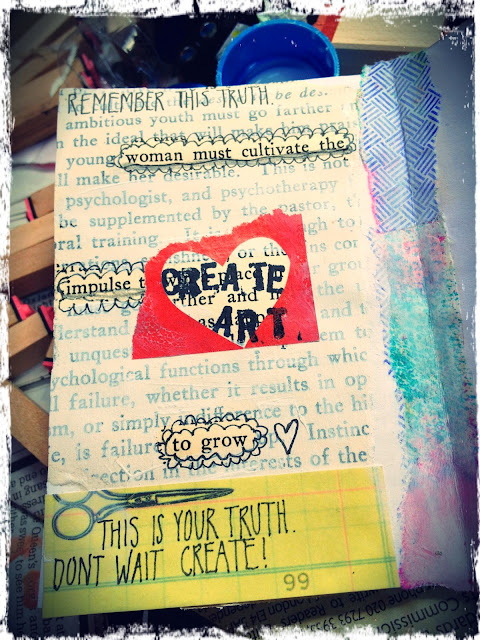 REMEMBER THIS TRUTH.
be des
ambitious youth must go farther
the ideal that will make
young woman must cultivate the
make her desirable. This is not
psychologist, and psychotherapy
be supplemented by the pastor,
training.
impulse
CREATE
ther and
ART.
unques
ychological functions through whic
failure, whether it results in op
or simply indifference to the hi
e, is failure Instinc
to grow
rection in the interests of the
THIS IS YOUR TRUTH.
DONT WAIT CREATE!
99